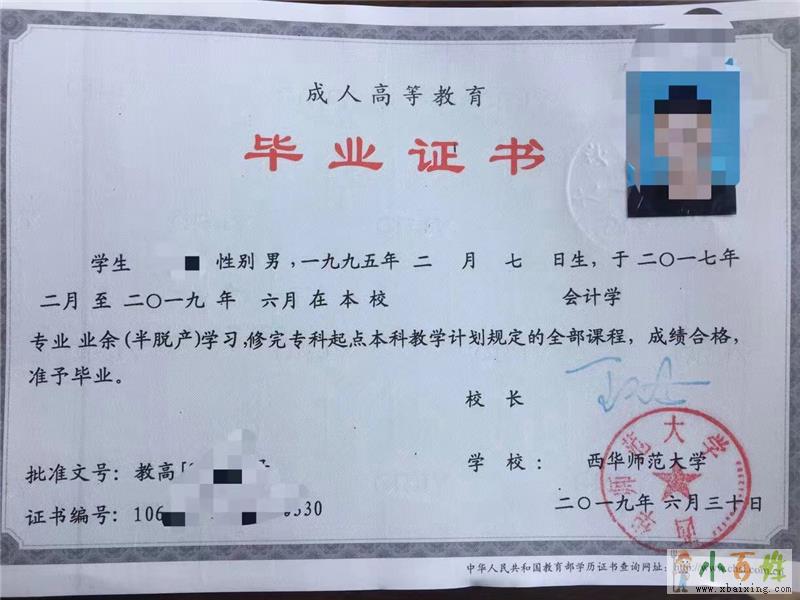 成人高等教育
毕业证书
学生 性别 男 ，一九九五年 二 月 七 日生，于 二〇一七年
二月 至 二〇一九 年 六月 在 本 校 会计学
专业 业余(半脱产)学习，修完专科起点本科教学计划规定的全部课程，成绩合格，
准予毕业。
校 长
批准文号：教高
学 校： 西华师范大学
证书编号：106 0530
二〇一九年 六月三十日
西华师范大学
中华人民共和国教育部学历证书查询网址：http://www.chsi.com.cn
小百姓
www.xbaixing.com